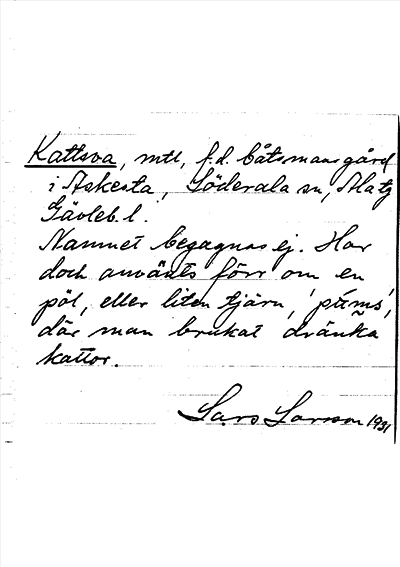 Kattsva, mtl, f.d. båtsmansgård
i Askesta, Söderala sn, Ala tg
Gävleb. l.
Namnet begagnas ej. Har
doch använts förr om en
pöl, eller liten tjärn,
där man brukat dränka
kattor.
Lars Larsson 1931